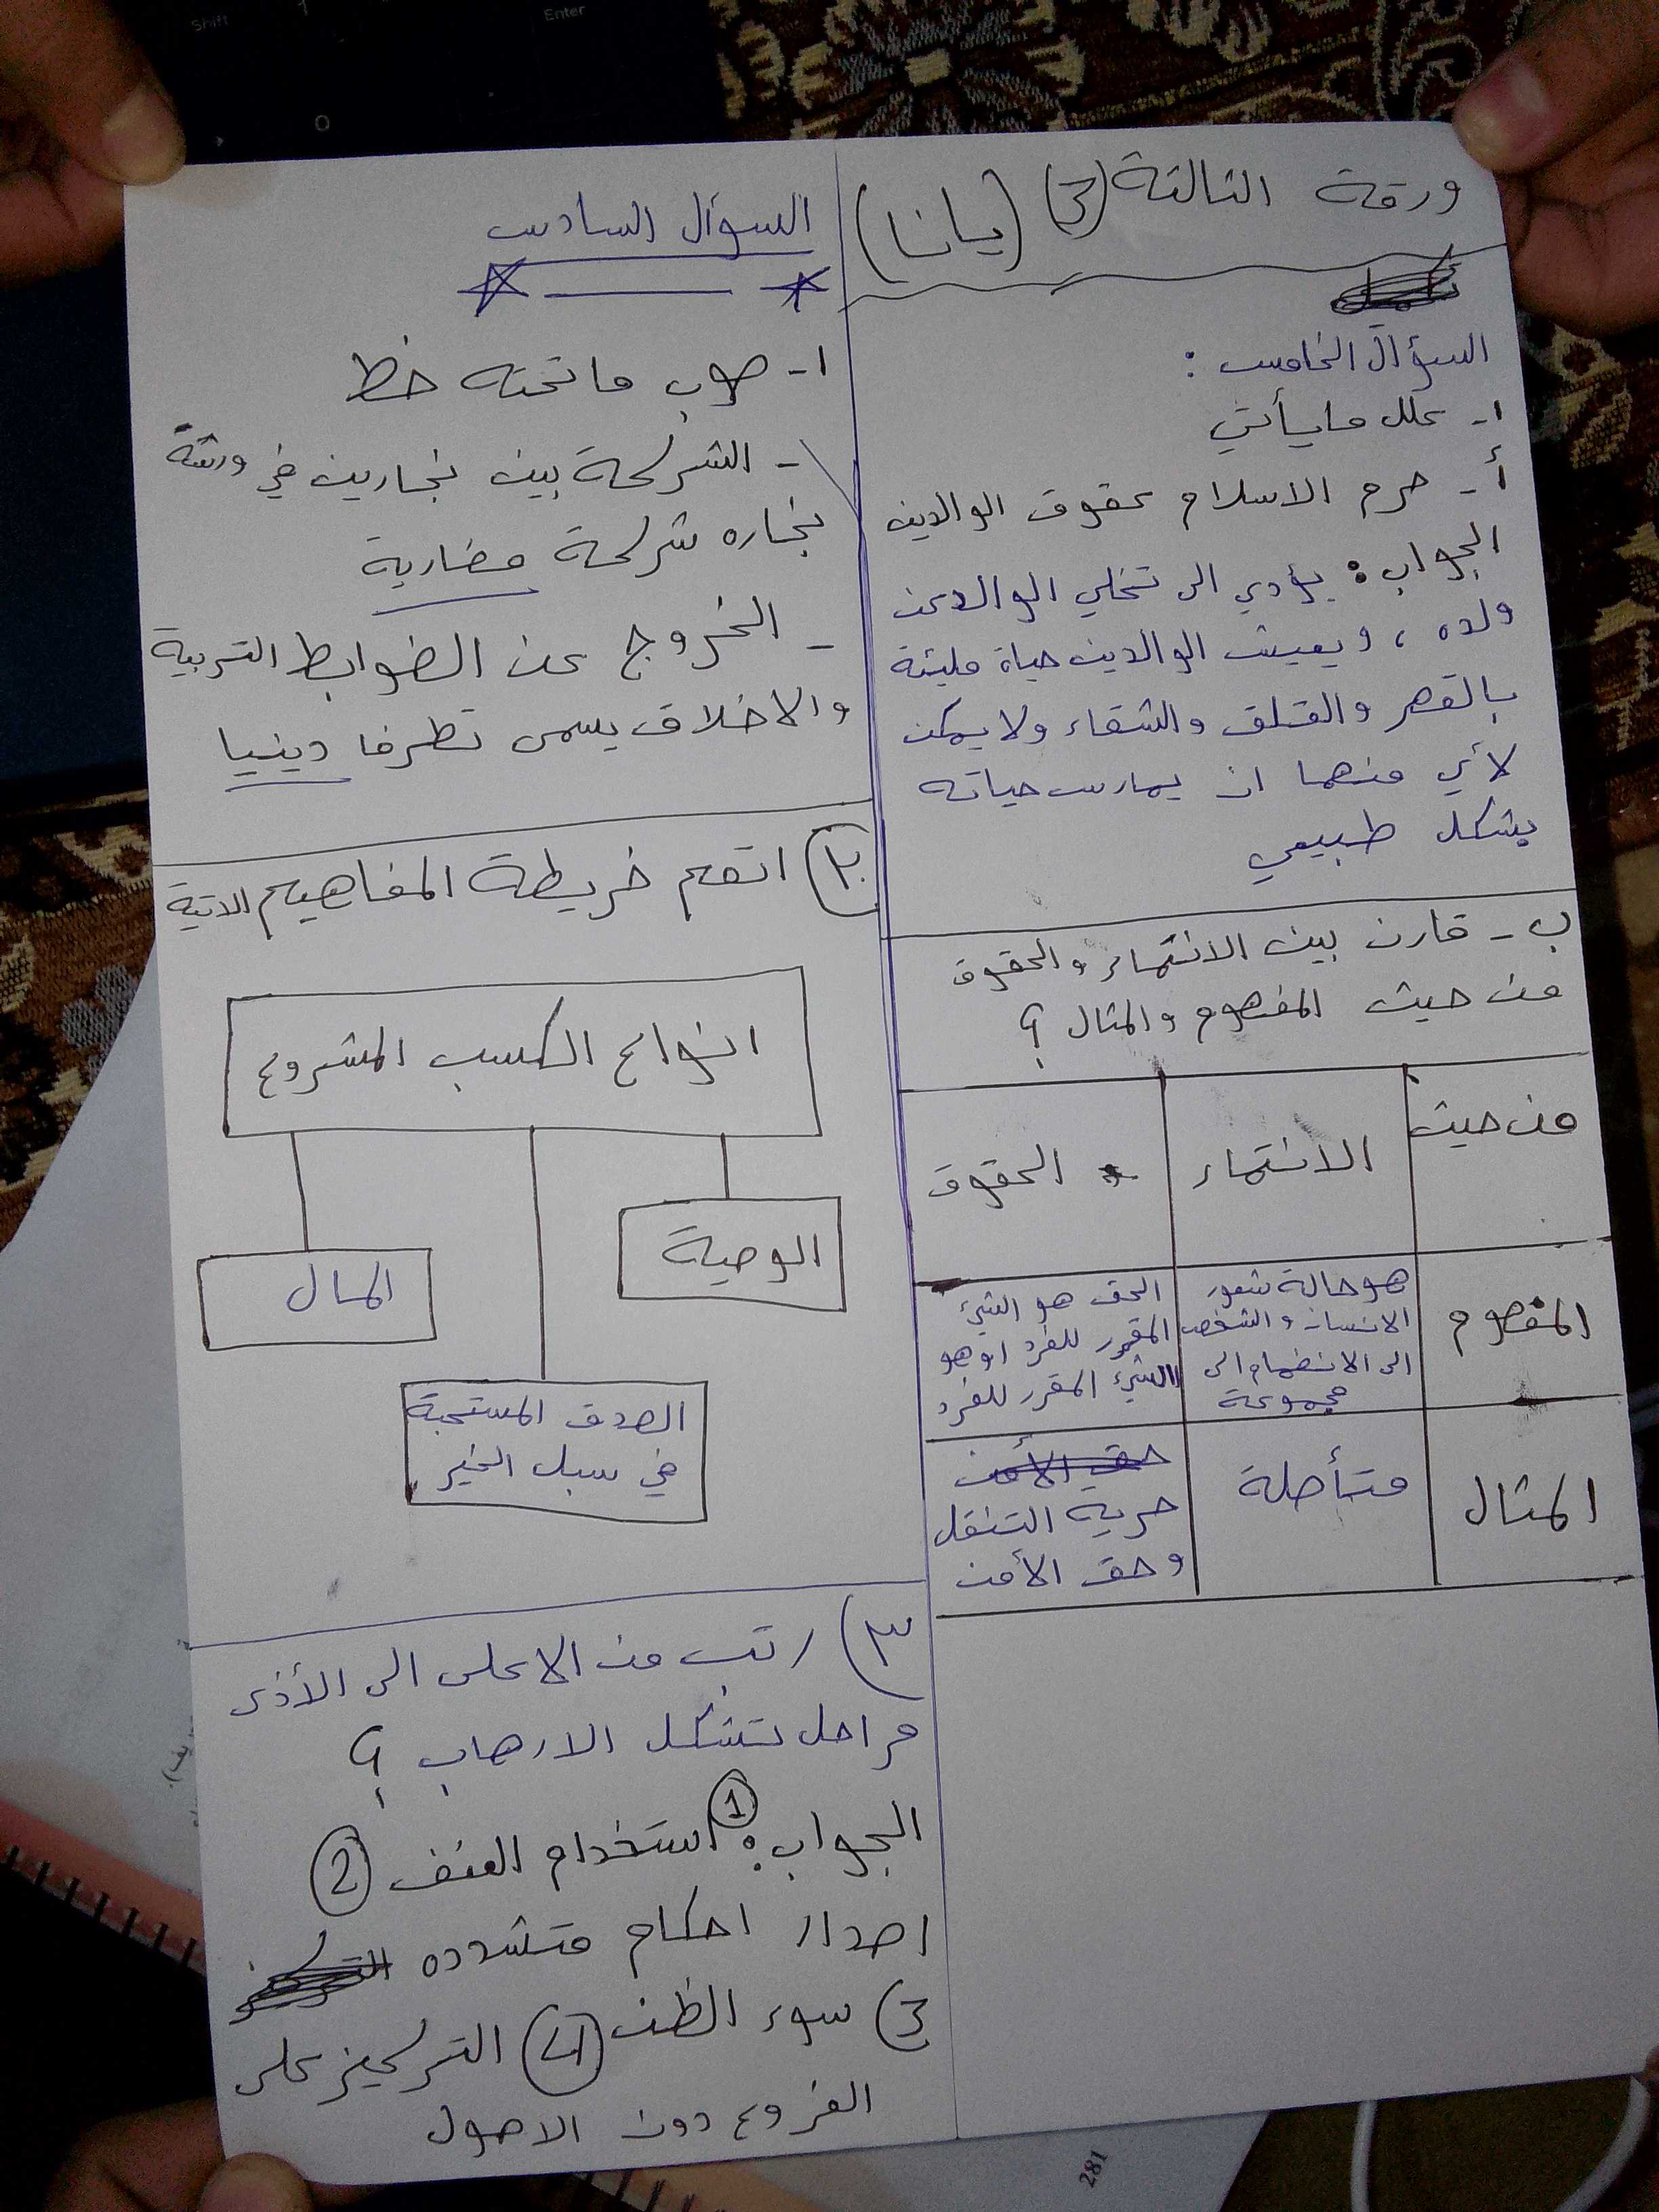 ورقة الثالثة (3) (يانا)
السؤال الخامس :
١- علل ما يأتي
أ- حرم الاسلام عقوق الوالدين
الجواب : يؤدي الى تخلي الوالد عن
ولده ، ويعيش الوالدين حياة مليئة
بالقهر والقلق والشقاء ولا يمكن
لأي منهما ان يمارس حياته
بشكل طبيعي
ب - قارن بين الانتماء والحقوق
من حيث المفهوم والمثال ؟
من حيث
الانتماء
الحقوق
المفهوم
هو حالة شعور
الانسان والشخص
الى الانضمام الى
مجموعة
الحق هو الشيء
المقرر للفرد او هو
الشيء المقرر للفرد
المثال
متأصلة
حق الأمن
حرية التنقل
وحق الأمن
السؤال السادس
١- صوب ما تحته خط
- الشركة بين نجارين في ورشة
نجاره شركة مضاربة
- الخروج عن الضوابط التربية
والاخلاق يسمى تطرفا دينيا
٢) اتمم خريطة المفاهيم الاتية
انواع الكسب المشروع
الوصية
المال
الصدق المستحبة
في سبل الخير
٣) رتب من الاعلى الى الأذى
مراحل تشكل الارهاب ؟
الجواب : 1 استخدام العنف 2
اصدار احكام متشدده
3) سوء الظن 4) التركيز على
الفروع دون الاصول
Shift
Enter
281